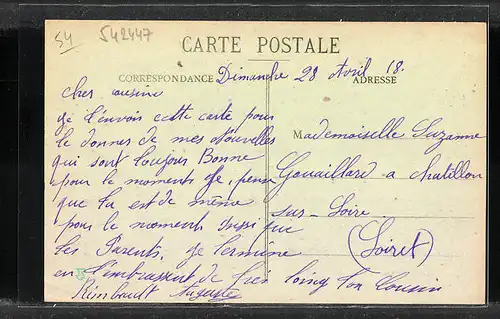 54 542447
CARTE POSTALE
CORRESPONDANCE ADRESSE
Dimanche 28 Avril 18.
cher cousine
je t'envois cette carte pour
te donner de mes Nouvelles
qui sont toujours Bonne
pour le moments Je, pense
que la est de même
pour le moment aussi que
les Parents, je termine
en t'embrassent de très loing ton Cousin
Rimbault Auguste
Mademoiselle Suzanne
Gouaillard a chatillon
sur-Loire
(Loiret)